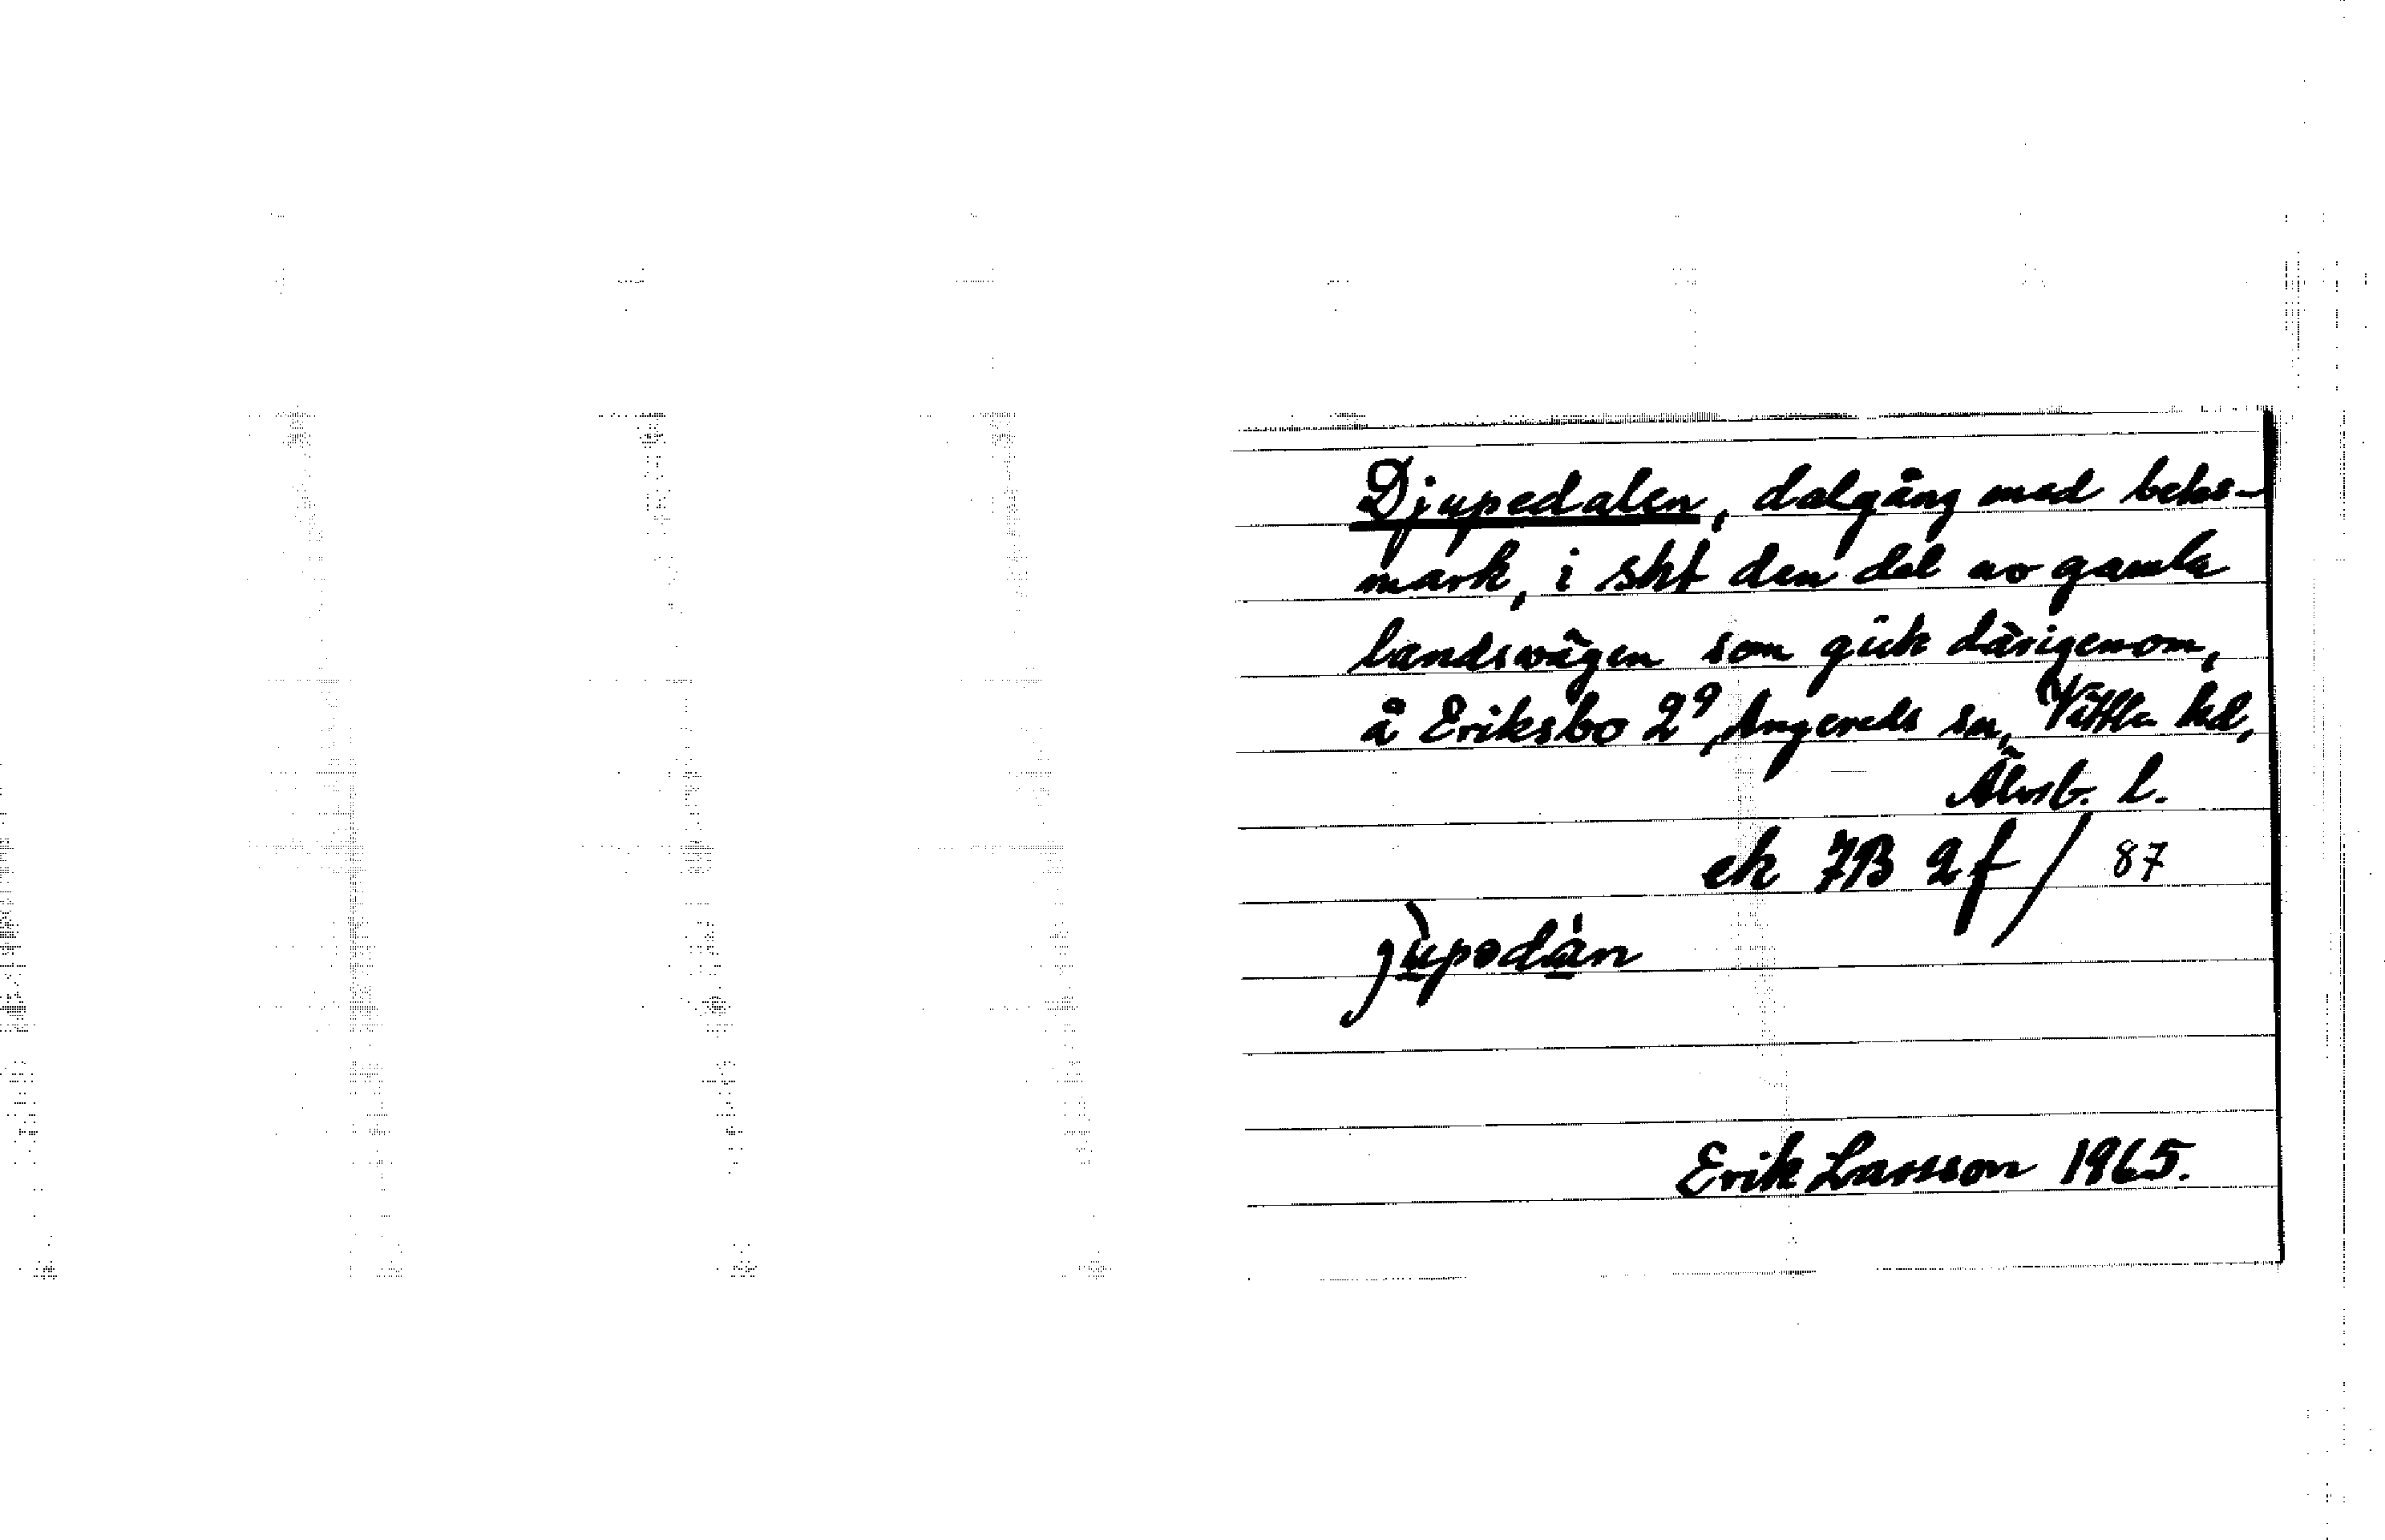 Djupedalen, dalgång med betes-
mark, i sht den del av gamla
landsvägen som gick därigenom,
å Eriksbo 2⁹, Angereds sn, Vättle hd,
Älvsb. l.
ek 7B 2f / 87
jùpədàn
Erik Larsson 1965.